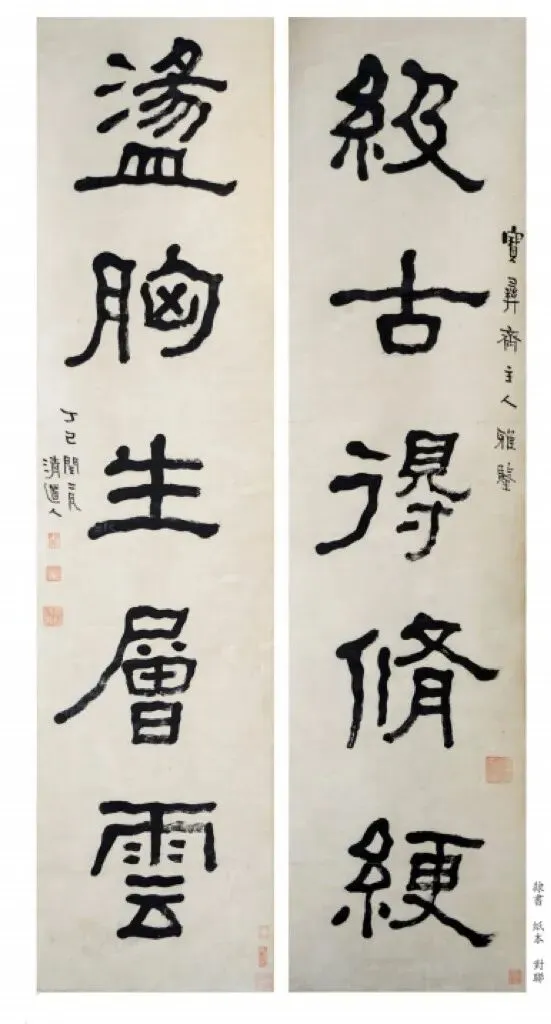 寶彝齋主人雅鑒
級古得脩綆
盪胸生層雲
丁巳閏二月
清道人
隸書 紙本 對聯